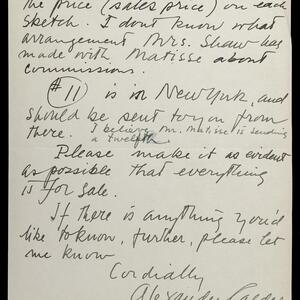 the price (sales price) on each
sketch. I dont know what
arrangement Mrs. Shaw has
made with Matisse about
commissions.
#11 is in New York, and
should be sent to you from
there. I believe Mr. Matisse is sending
a twelfth
Please make it as evident
as possible that everything
is for sale.
If there is anything you'd
like to know, further, please let
me know
Cordially
Alexander Calder